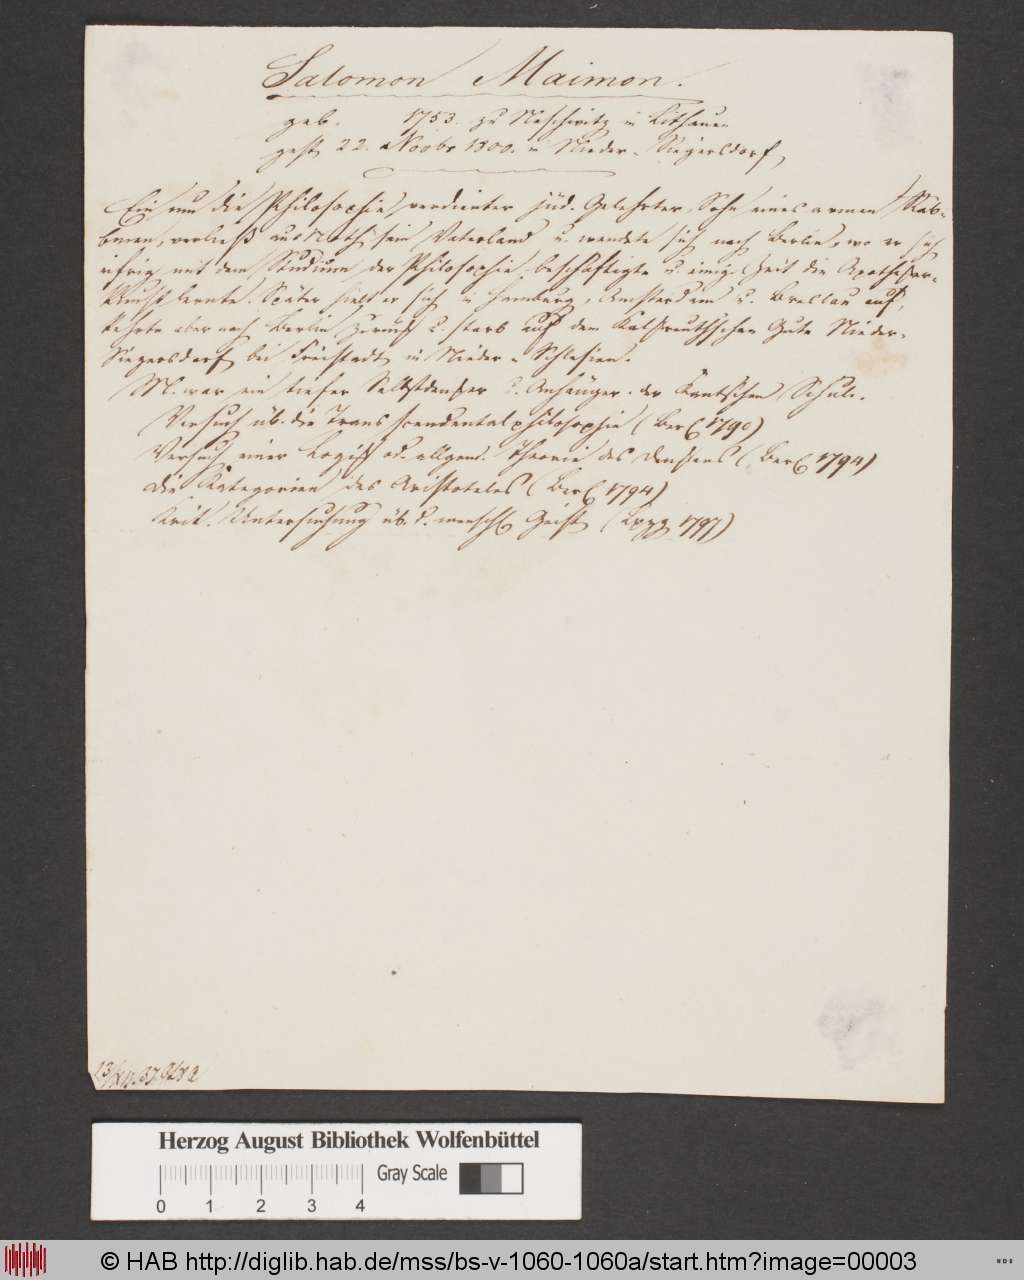 Salomon Maimon.
geb. 1753. zu Neschwitz in Litthauen
gest. 22. Novbr 1800. in Nieder-Siegersdorf,
Ein um die Philosophie verdienter jüd. Gelehrter, Sohn eines armen Rab-
binen, verließ aus Noth sein Vaterland u. wendete sich nach Berlin, wo er sich
eifrig mit dem Studium der Philosophie beschäftigte u. einige Zeit die Apotheker-
Kunst lernte. Später hielt er sich in Hamburg, Amsterdam u. Breslau auf,
kehrte aber nach Berlin zurück u. starb auf dem Kalkreuthschen Gute Nieder-
Siegersdorf bei Freistadt in Nieder-Schlesien.
M. war ein tiefer Selbstdenker u. Anhänger der Kantschen Schule.
Versuch üb. die Transscendentalphilosophie (Berl. 1790)
Versuch einer Logik od. allgem. Theorie des Denkens (Berl. 1794)
Die Kategorien des Aristoteles (Berl. 1794)
Krit. Untersuchung üb. d. menschl. Geist (Lpzg 1797)
Herzog August Bibliothek Wolfenbüttel
Gray Scale
0 1 2 3 4
© HAB http://diglib.hab.de/mss/bs-v-1060-1060a/start.htm?image=00003